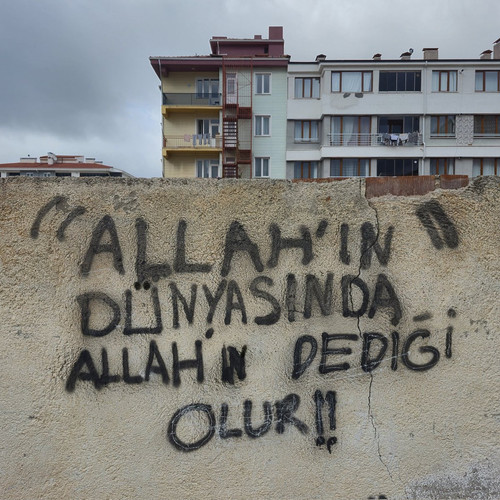 "ALLAH'IN"
DÜNYASINDA
ALLAH'IN DEDİĞİ
OLUR!!